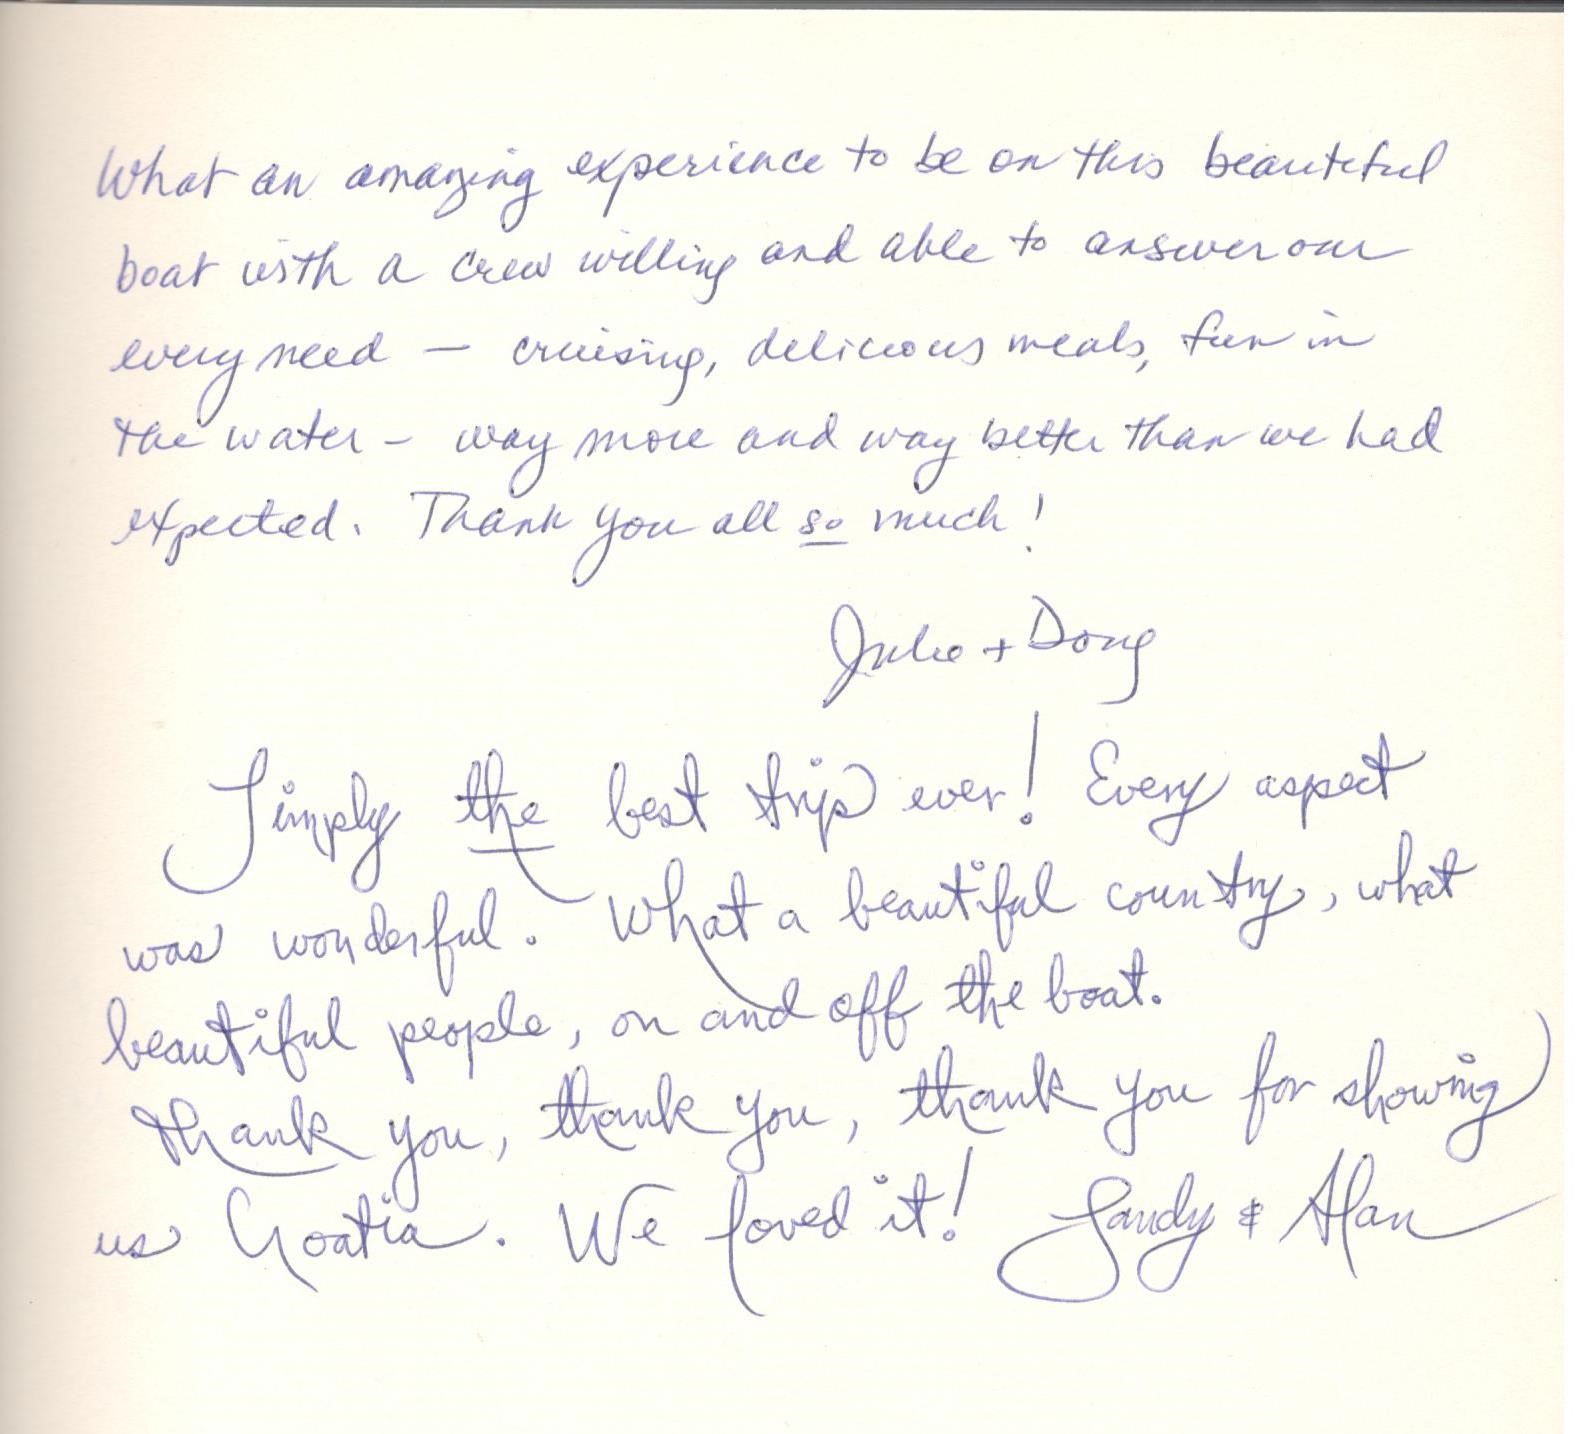 What an amazing experience to be on this beautiful
boat with a crew willing and able to answer our
every need — cruising, delicious meals, fun in
the water - way more and way better than we had
expected. Thank you all so much!
Julie + Doug
Simply the best trip ever! Every aspect
was wonderful. What a beautiful country, what
beautiful people, on and off the boat.
Thank you, thank you, thank you for showing
us Croatia. We loved it! Sandy & Alan